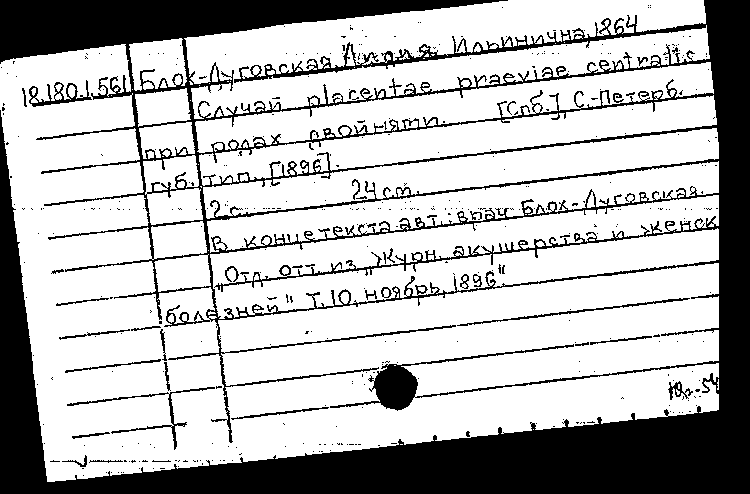 18.180.1.561 Блох-Дуговская, Лидия Ильинична, 1864
Случай placentae praeviae centralis
при родах двойнями. [Спб.], С.-Петерб.
губ. тип., [1896].
2 с. 24 см.
В конце текста авт.: врач Блох-Дуговская.
"Отд. отт. из "Журн. акушерства и женск
болезней" Т. 10, ноябрь, 1896".